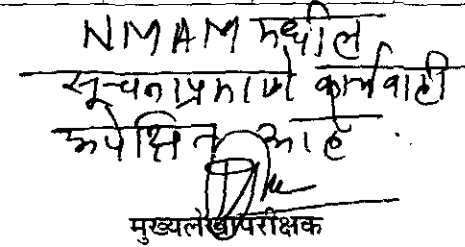 NMAM मधील
सूचनाप्रमाणे कार्यवाही
अपेक्षित आहे.
मुख्यलेखापरीक्षक